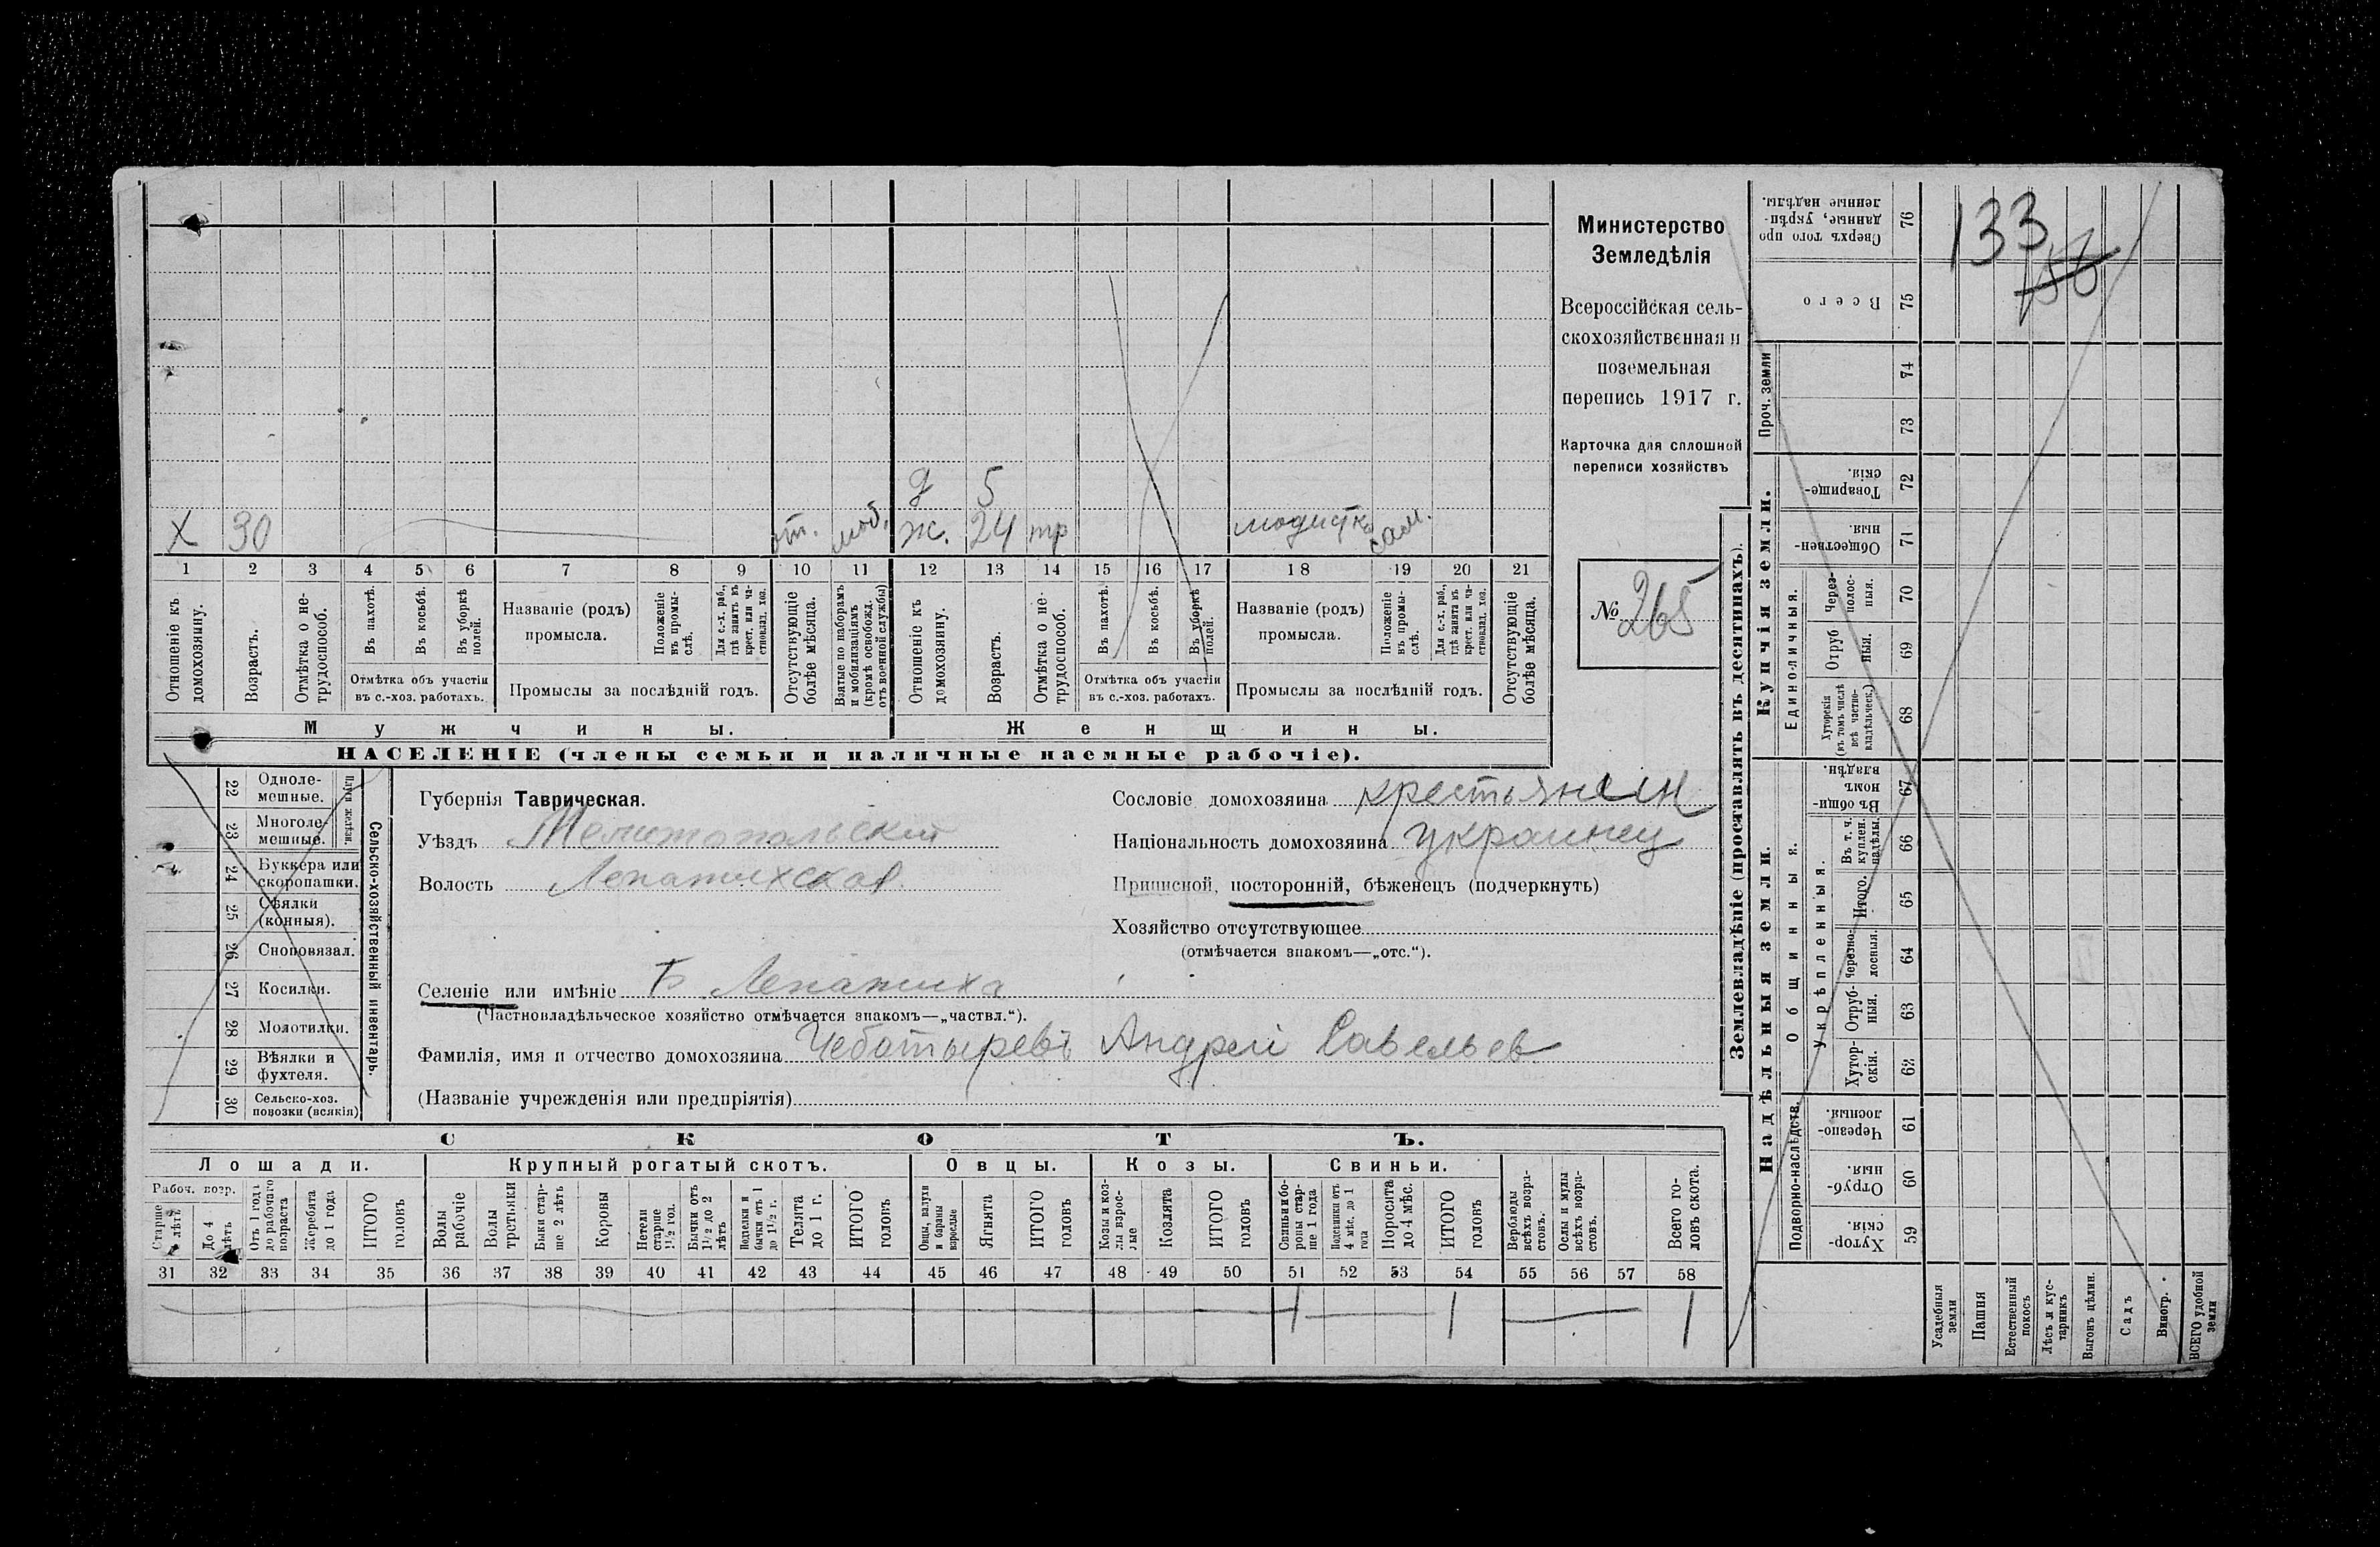 Министерство
Земледѣлія
Всероссійская сель-
скохозяйственная и
поземельная
перепись 1917 г.
Карточка для сплошной
переписи хозяйствъ
№ 265
133
д 5
X 30 от. моб. ж. 24 тр модистка сам.
1 2 3 4 5 6 7 8 9 10 11 12 13 14 15 16 17 18 19 20 21
Отношеніе къ домохозяину.
Возрастъ.
Отмѣтка о не-
трудоспособ.
Въ пахотѣ.
Въ косьбѣ.
Въ уборкѣ полей.
Отмѣтка объ участіи
въ с.-хоз. работахъ.
Названіе (родъ)
промысла.
Положеніе въ промы-
слѣ.
Для с.-х. раб., гдѣ занятъ въ крест. или ча-
стновлад. хоз.
Промыслы за послѣдній годъ.
Отсутствующіе болѣе мѣсяца.
Взятые по наборамъ и мобилизаціямъ (кромѣ освобожд. отъ военной службы)
Отношеніе къ домохозяину.
Возрастъ.
Отмѣтка о не-
трудоспособ.
Въ пахотѣ.
Въ косьбѣ.
Въ уборкѣ полей.
Отмѣтка объ участіи
въ с.-хоз. работахъ.
Названіе (родъ)
промысла.
Положеніе въ промы-
слѣ.
Для с.-х. раб., гдѣ занята въ крест. или ча-
стновлад. хоз.
Промыслы за послѣдній годъ.
Отсутствующіе болѣе мѣсяца.
Мужчины.
Женщины.
НАСЕЛЕНІЕ (члены семьи и наличные наемные рабочіе).
Сельско-хозяйственный инвентарь.
Плуги желѣзн.
22 Одноле-
мешные.
23 Многоле-
мешные.
24 Буккера или
скоропашки.
25 Сѣялки
(конныя).
26 Сноповязал.
27 Косилки.
28 Молотилки.
29 Вѣялки и
фухтеля.
30 Сельско-хоз.
повозки (всякія)
Губернія Таврическая.
Уѣздъ Мелитопольский
Волость Лепатихская
Селеніе или имѣніе Б Лепатиха
(Частновладѣльческое хозяйство отмѣчается знакомъ—„частвл.“).
Фамилія, имя и отчество домохозяина Чеботыревъ Андрей Савельев
(Названіе учрежденія или предпріятія)
Сословіе домохозяина крестьянин
Національность домохозяина украинец
Приписной, посторонній, бѣженецъ (подчеркнуть)
Хозяйство отсутствующее
(отмѣчается знакомъ—„отс.“).
СКОТЪ.
Лошади. Крупный рогатый скотъ. Овцы. Козы. Свиньи.
Рабоч. возр.
До 4 лѣтъ
Отъ 1 года до рабочаго возраста
Жеребята до 1 года
ИТОГО головъ
Волы рабочіе
Волы третьяки
Быки стар-
ше 2 лѣтъ
Коровы
Нетели старше 1½ год.
Бычки отъ 1½ до 2 лѣтъ
Подтелки и бычки отъ 1 до 1½ г.
Телята до 1 г.
ИТОГО головъ
Овцы, валухи и бараны взрослые
Ягнята
ИТОГО головъ
Козы и коз-
лы взрос-
лые
Козлята
ИТОГО головъ
Свиньи и бо-
ровы стар-
ше 1 года
Подсвинки отъ 4 мѣс. до 1 года
Поросята до 4 мѣс.
ИТОГО головъ
Верблюды всѣхъ возра-
стовъ.
Ослы и мулы всѣхъ возра-
стовъ.
Всего го-
ловъ скота.
31 32 33 34 35 36 37 38 39 40 41 42 43 44 45 46 47 48 49 50 51 52 53 54 55 56 57 58
1 1 1
Землевладѣніе (проставлять въ десятинахъ).
Надѣльныя земли.
Купчія земли.
Проч. земли
Подворно-наслѣдств.
Общинныя.
Укрѣпленныя.
Единоличныя.
Сверхъ того про
данные, укрѣп-
ленные надѣлы. 76
Всего 75
74
73
Товарище-
скія. 72
Обществен-
ныя. 71
Через-
полос-
ныя. 70
Отруб
ныя. 69
Хуторскія (въ томъ числѣ всѣ частно-
владѣльческ.) 68
Въ общи-
номъ
владѣн. 67
Въ т. ч. куплен. надѣлы. 66
Итого. 65
Черезпо-
лосныя. 64
Отруб-
ныя. 63
Хутор-
скія. 62
Черезпо-
лосныя. 61
Отруб-
ныя. 60
Хутор-
скія. 59
Усадебныя земли
Пашня
Естественный покосъ
Лѣсъ и кус-
тарникъ
Выгонъ цѣлин.
Садъ
Виногр.
ВСЕГО удобной земли